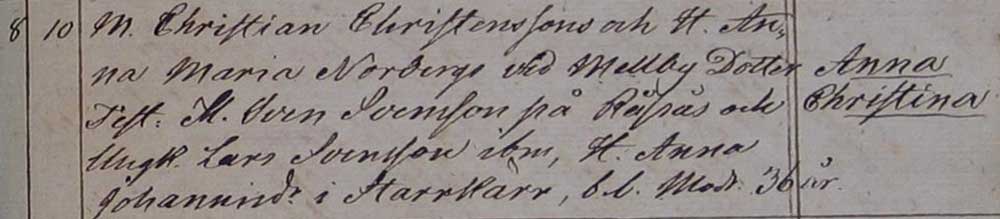 8 10 M. Christian Christenssons och H. An-
na Maria Norbergs vid Mellby Dotter Anna
Test: M. Sven Svensson på Råsäs och Christina
Ungk. Lars Svensson ibm, H. Anna
Johannisdr i Starrkärr, b.b. Modr. 36 år.